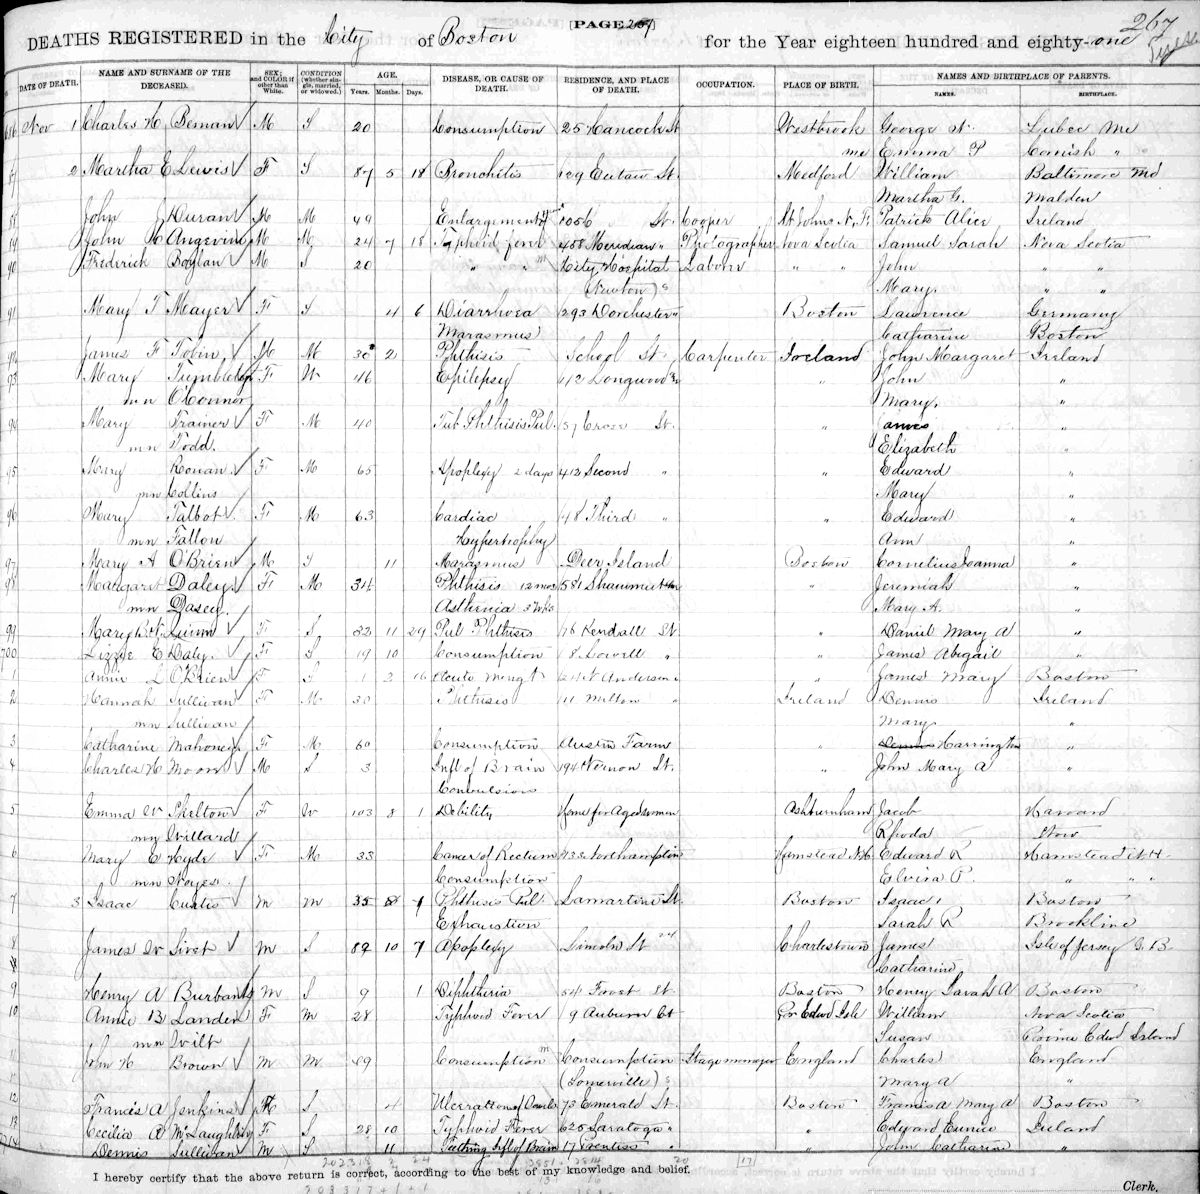 [PAGE 267]
267
DEATHS REGISTERED in the City of Boston for the Year eighteen hundred and eighty-one
DATE OF DEATH. NAME AND SURNAME OF THE DECEASED. SEX; and COLOR if other than White. CONDITION (whether single, married, or widowed.) AGE. Years. Months. Days. DISEASE, OR CAUSE OF DEATH. RESIDENCE, AND PLACE OF DEATH. OCCUPATION. PLACE OF BIRTH. NAMES AND BIRTHPLACE OF PARENTS. NAMES. BIRTHPLACE.
Nov 1 Charles H Beman M S 20 Consumption 25 Hancock St Westbrook George Lubec Me
me Emma P Cornish "
2 Martha E Lewis F S 87 5 18 Bronchitis 129 Eutaw St. Medford William Baltimore Md
Martha G. Malden
88 John J Duran M M 49 Enlargement 1056 St. Cooper St Johns N. F. Patrick Alice Ireland
89 John H Angevin M M 24 7 18 Typhoid fever 408 Meridian " Photographer Nova Scotia Samuel Sarah Nova Scotia
90 Frederick Boylan M S 20 " " City Hospital Laborer " " John " "
(Newton) Mary. " "
91 Mary T Mayer F S 4 6 Diarrhoea 293 Dorchester " Boston Lawrence Germany
Marasmus Catharine Boston
92 James F Tobin M M 30 2 Phthisis School St Carpenter Ireland John Margaret Ireland
93 Mary Tumbleton F W 46 Epilepsy 112 Longwood " John "
mn O'Connor Mary. "
94 Mary Trainer F M 40 Tub Phthisis Pul. 137 Cross St. " James "
mn Todd. Elizabeth "
95 Mary Ronan F M 65 Apoplexy 2 days 412 Second " " Edward "
mn Collins Mary "
96 Mary Talbot F M 63 Cardiac 148 Third " " Edward "
mn Fallon Hypertrophy Ann "
97 Mary A O'Brien M S 11 Marasmus Deer Island Boston Cornelius Joanna "
98 Margaret Daley F M 34 Phthisis 12 mos 581 Shawmut Ave " Jeremiah "
mn Dasey. Asthenia 3 wks Mary A. "
99 Mary Quinn F S 22 11 29 Pul Phthisis 16 Kendall St " Daniel Mary A "
700 Lizzie E Daly F S 19 10 Consumption 18 Lowell " " James Abigail "
1 Annie L O'Brien F S 1 2 16 Acute Mengt 62 N Anderson " " James Mary Boston
2 Hannah Sullivan F M 30 Phthisis 11 Milton " Ireland Dennis Ireland
mn Sullivan Mary "
3 Catharine Mahoney F M 60 Consumption Austin Farm " Dennis Harrington "
4 Charles H Moon M S 3 Infl of Brain 194 Vernon St. " John Mary A "
Convulsions
5 Emma W Skelton F W 103 8 1 Debility Home for Aged women Ashburnham Jacob Harvard
mn Willard Rhoda Stow
6 Mary E Hyde F M 33 Cancer of Rectum 433 Northampton Hamstead N.H. Edward R Hamstead N H.
mn Noyes. Consumption Elvira P. " " "
7 3 Isaac Curtis M M 35 8 7 Phthisis Pul. Lamartine St. Boston Isaac Boston
Exhaustion Sarah R Brookline
8 James W Sivet M S 82 10 7 Apoplexy Lincoln St Charlestown James Isle of Jersey G. B.
Catharine
9 Henry A Burbank M S 9 1 Diphtheria 54 Frost St. Boston Henry Sarah A Boston
10 Annie B Lander F M 28 Typhoid Fever 9 Auburn Ct Pr Edwd Isle William Nova Scotia
mn Wilt Susan Prince Edwd Island
11 John H Brown M M 49 Consumption Consumption Stage manager England Charles England
(Somerville) Mary A "
12 Francis A Jenkins M S 4 Ulceration of Bowels 73 Emerald St. Boston Francis A Mary A Boston
13 Cecilia A McLaughlin F S 28 10 Typhoid Fever 625 Saratoga " " Edward Eunice Ireland
14 Dennis Sullivan M S 11 Teething Infl of Brain 17 Prentiss " " John Catharine "
I hereby certify that the above return is correct, according to the best of my knowledge and belief.
Clerk.